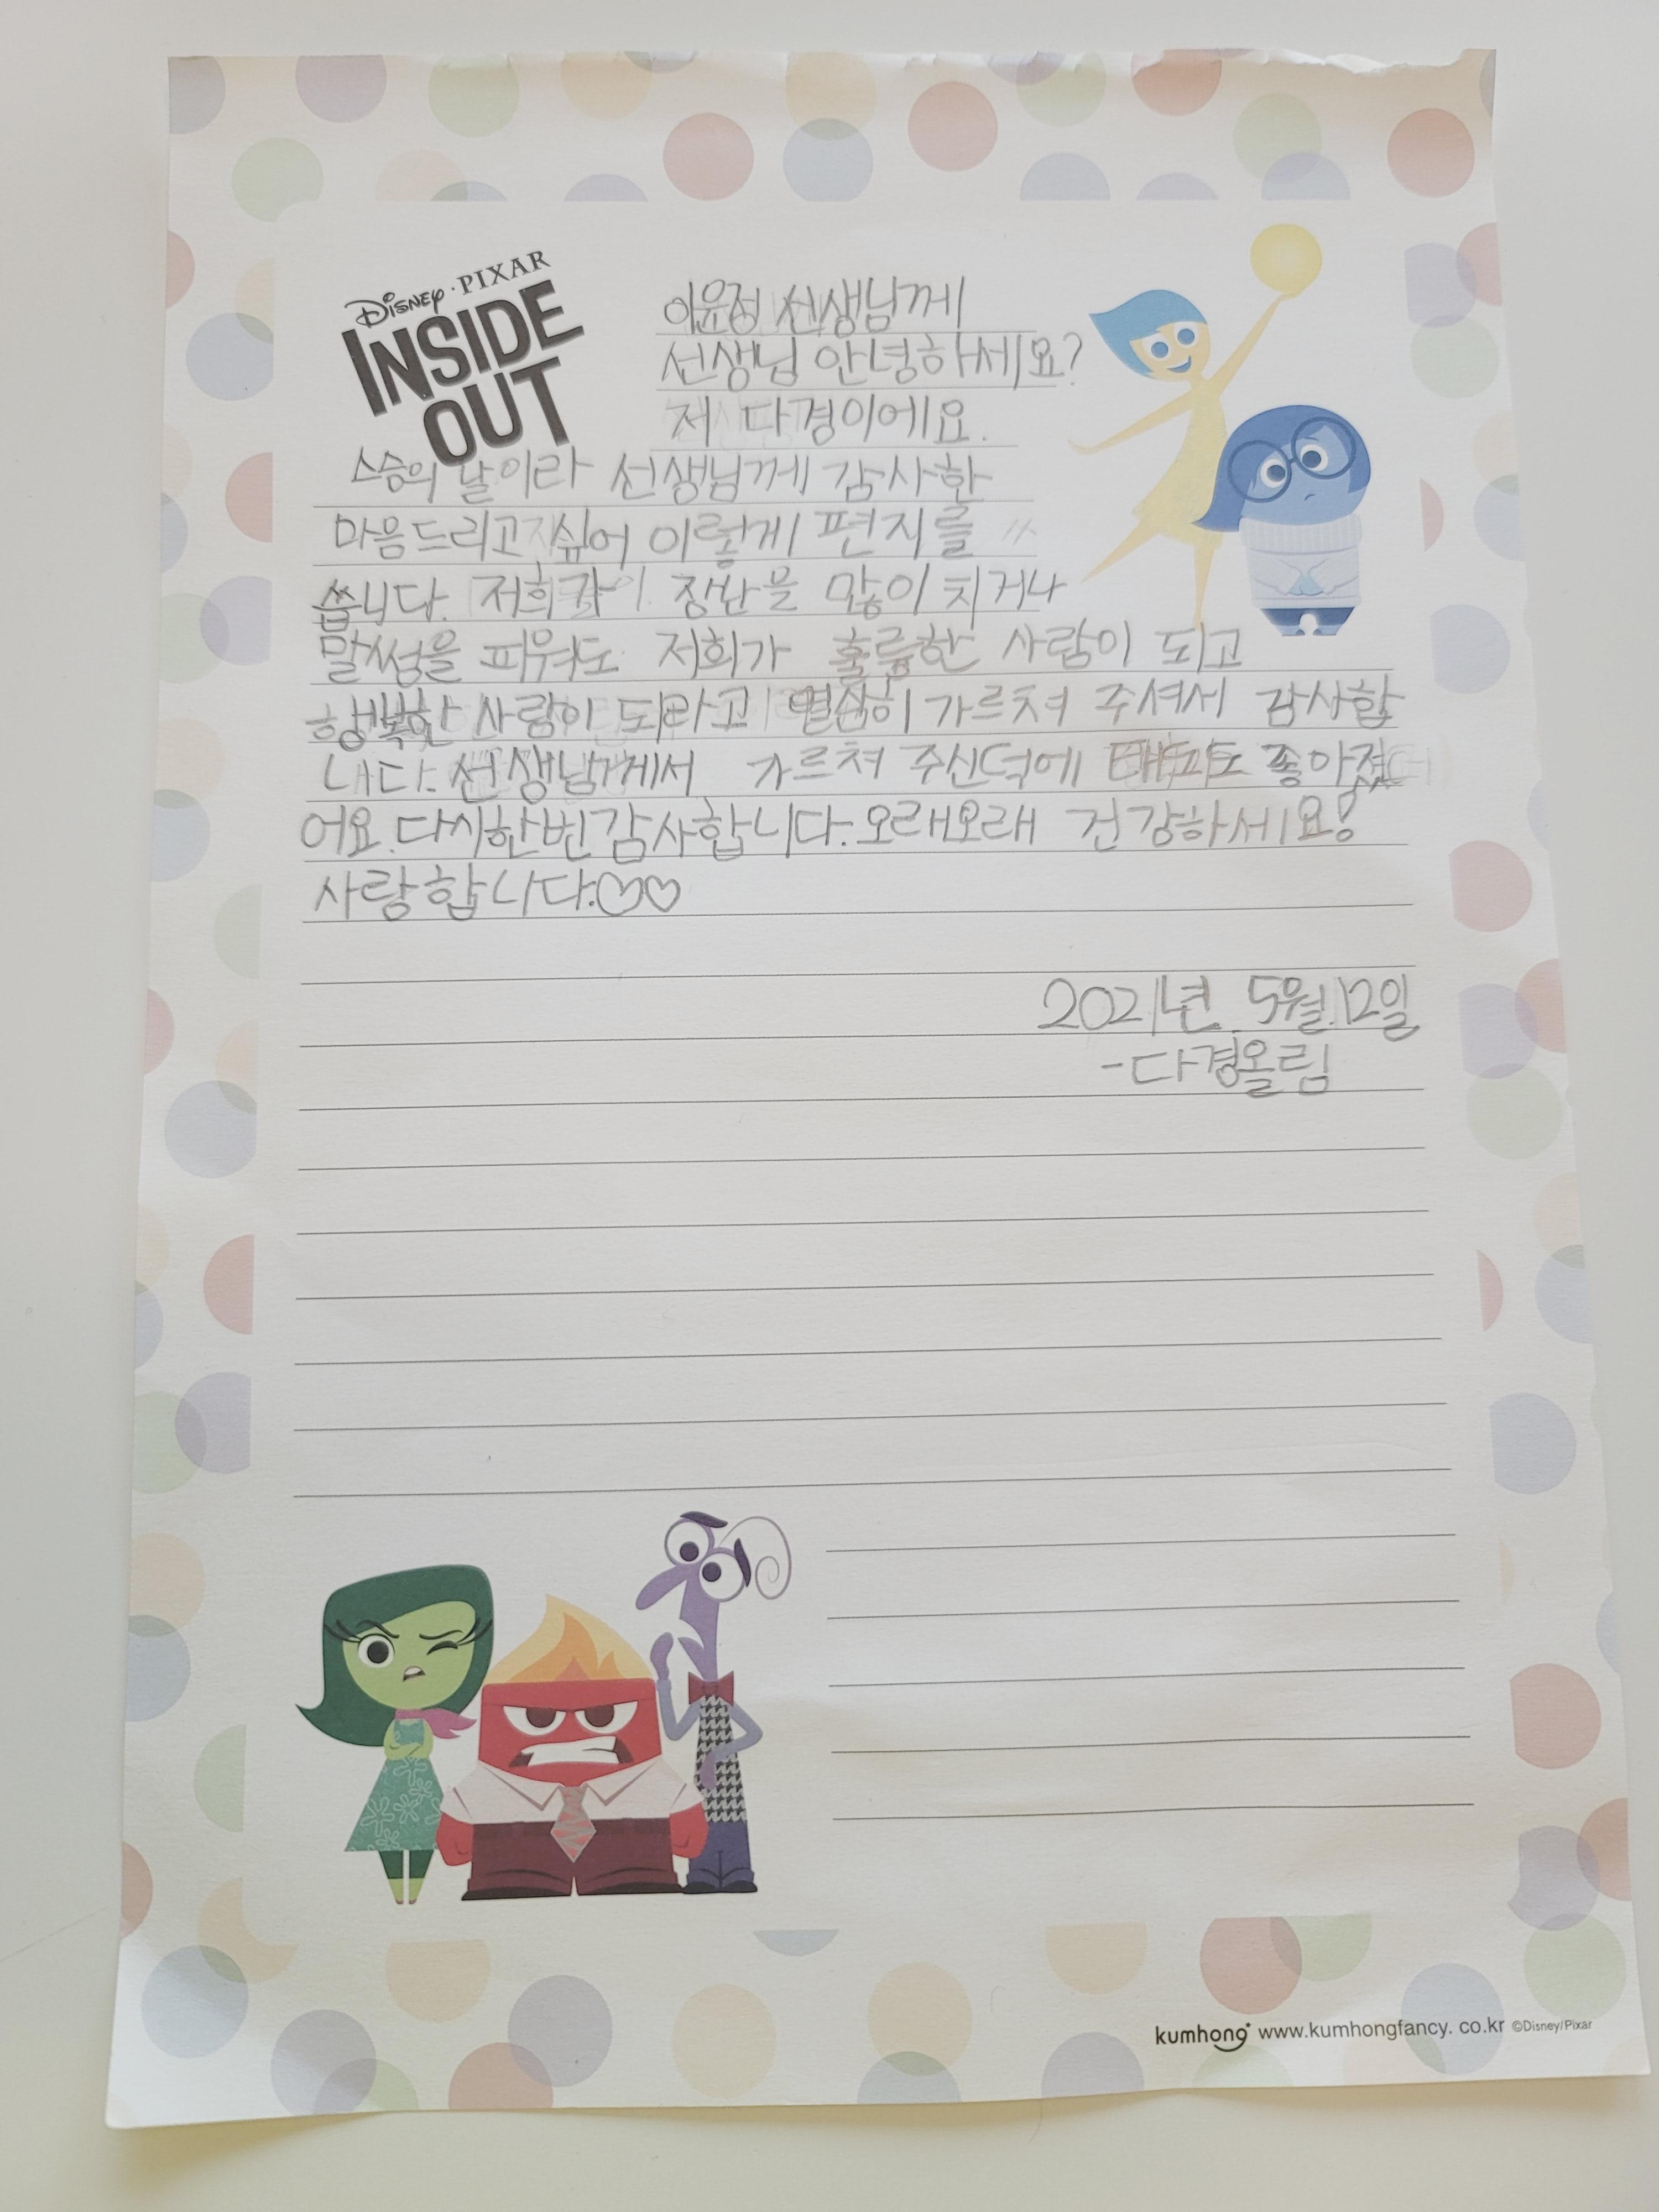 DISNEY·PIXAR
INSIDE
OUT
이윤정 선생님께
선생님 안녕하세요?
저 다경이에요.
스승의 날이라 선생님께 감사한
마음드리고 싶어 이렇게 편지를
씁니다. 저희가 장난을 많이 치거나
말썽을 피워도 저희가 훌륭한 사람이 되고
행복한 사람이 되라고 열심히 가르쳐 주셔서 감사합
니다. 선생님께서 가르쳐 주신덕에 좋아졌
어요. 다시한번감사합니다. 오래오래 건강하세요!
사랑합니다.♡♡
2021년 5월 12일
-다경올림
kumhong www.kumhongfancy. co.kr ©Disney/Pixar